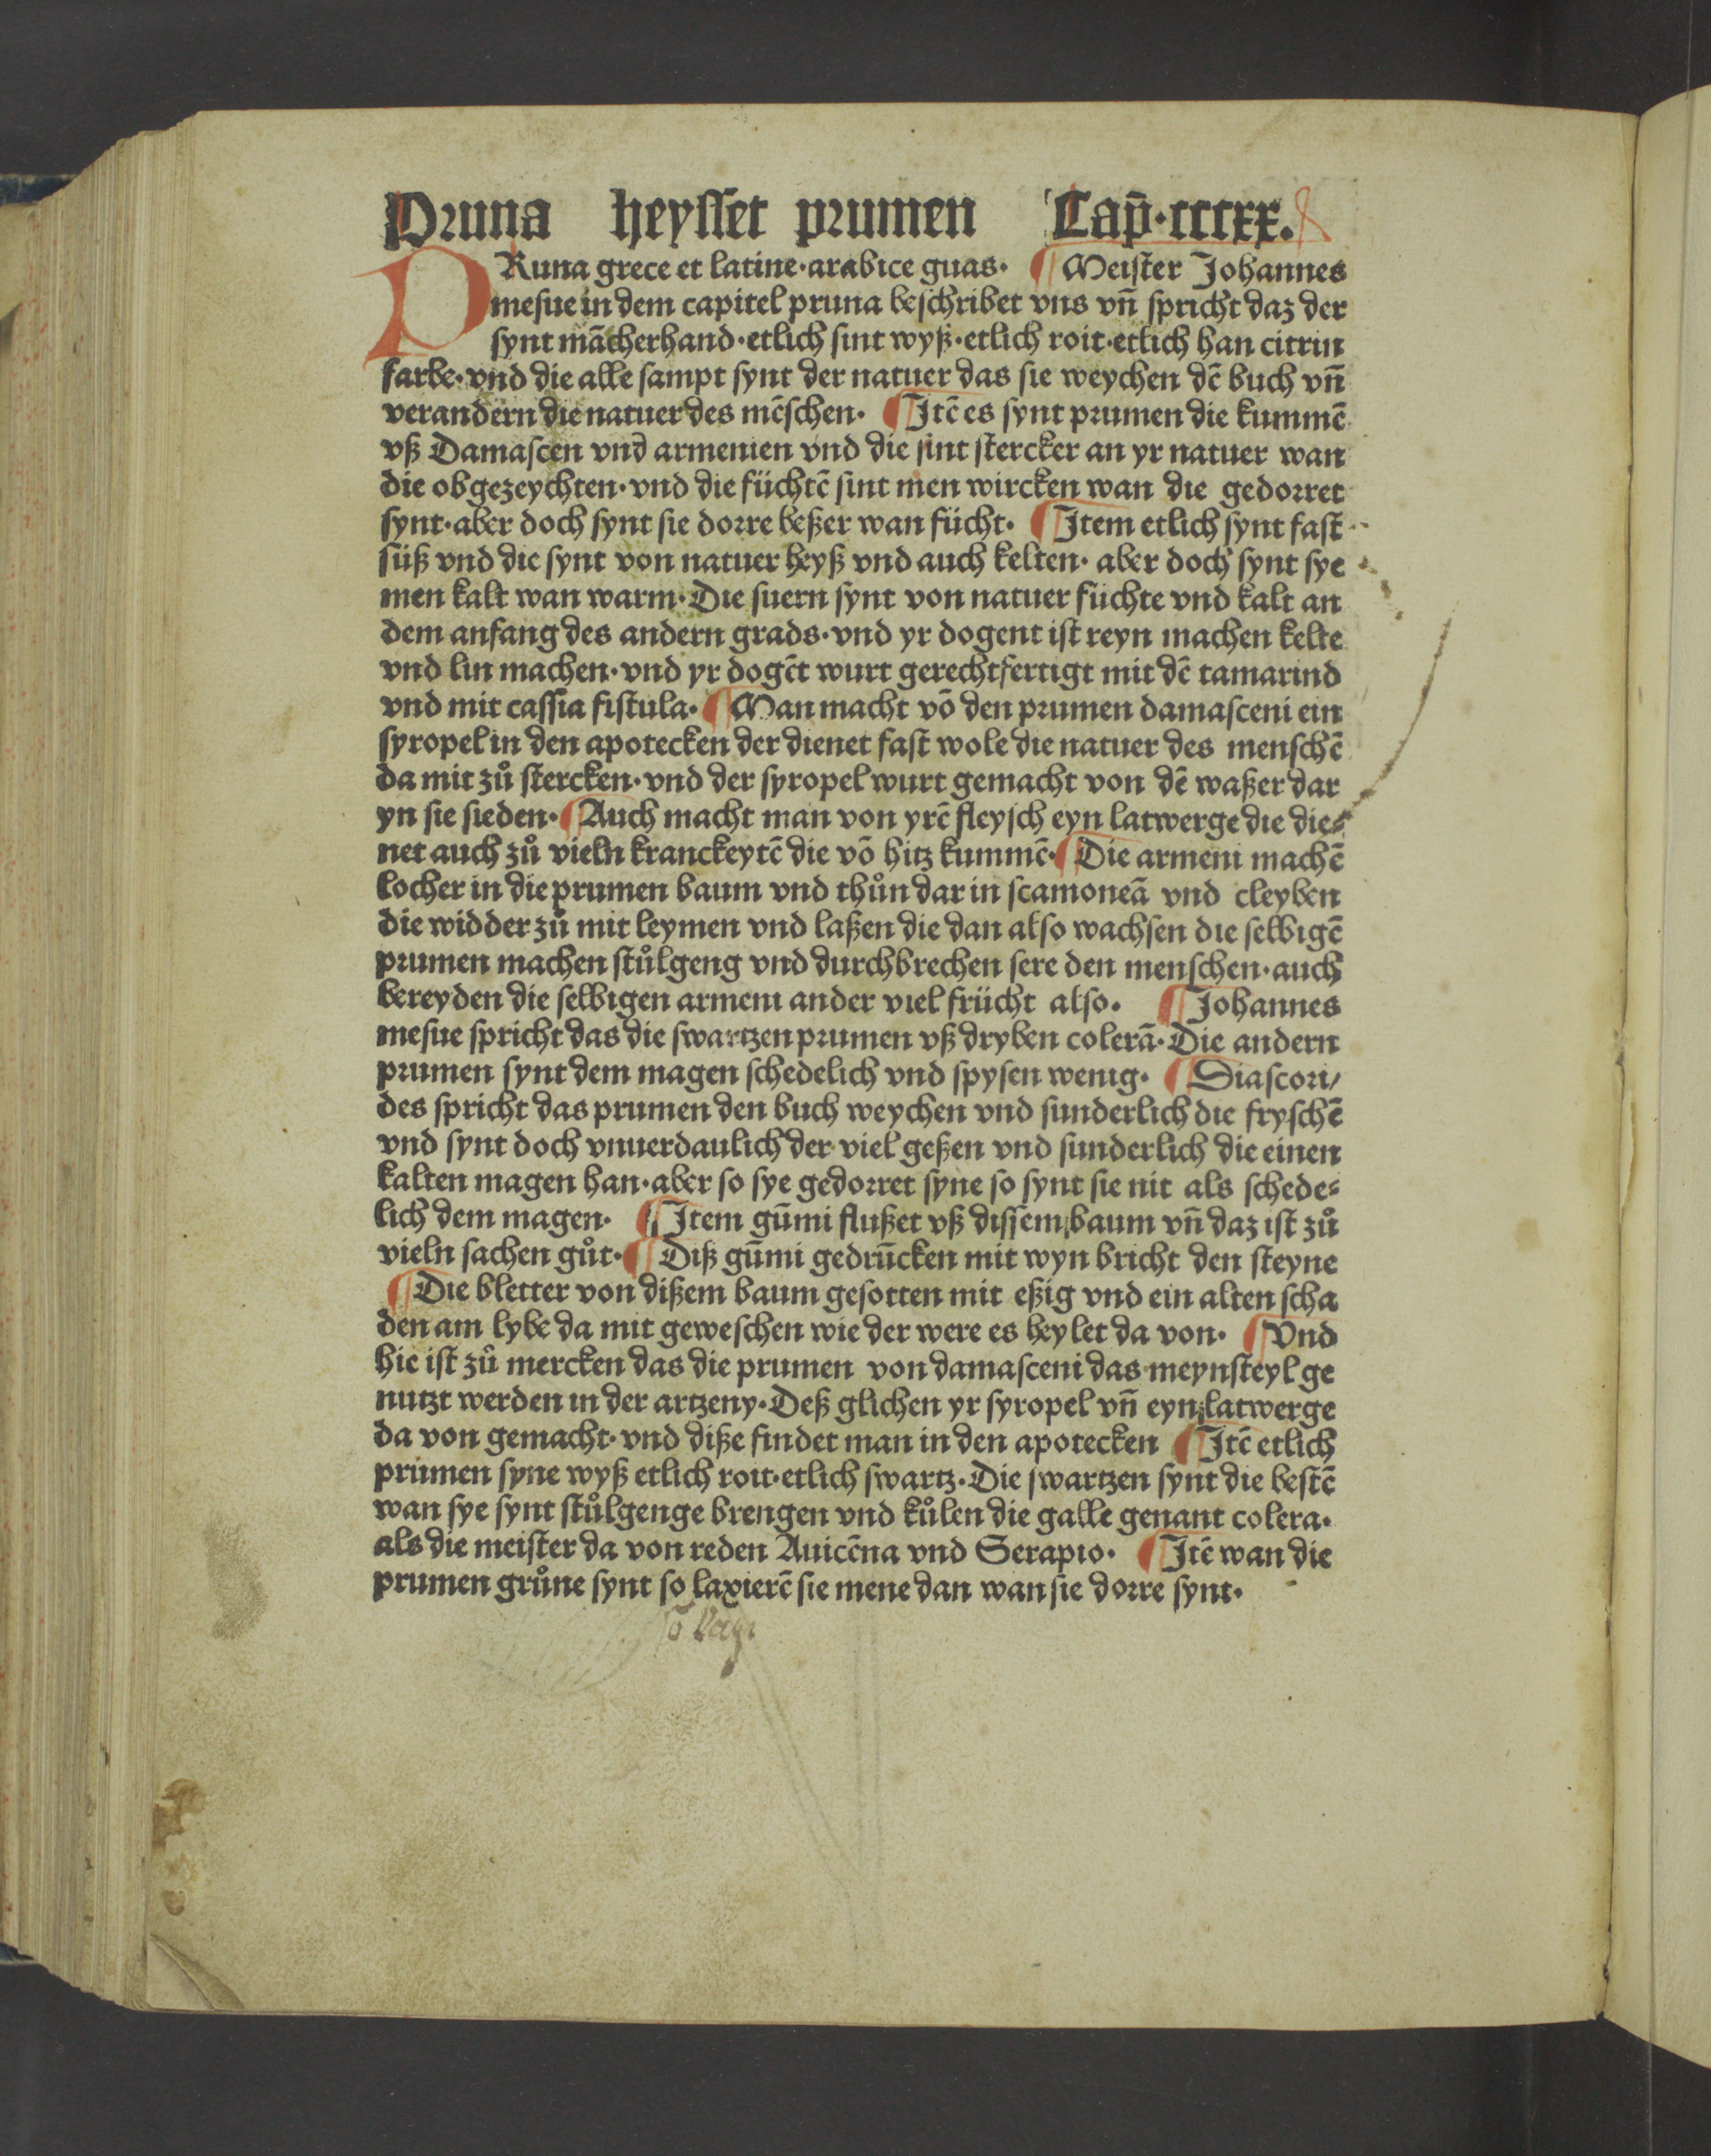 Pruna heysset prumen Cap̄·ccccxx.
PRuna grece et latine·arabice guas· ¶ Meister Johannes
mesue in dem capitel pruna beschribet vns vn̄ spricht daz der
synt mācherhand·etlich sint wyß·etlich roit·etlich han citrin
farbe·vnd die alle sampt synt der natuer das sie weychen dē buch vn̄
verandern die natuer des mēschen· ¶ Jtē es synt prumen die kummē
vß Damascen vnd armenien vnd die sint stercker an yr natuer wan
die obgezeychten·vnd die füchtē sint men wircken wan die gedorret
synt·aber doch synt sie dorre beßer wan fücht· ¶ Jtem etlich synt fast
süß vnd die synt von natuer heyß vnd auch kelten· aber doch synt sye
men kalt wan warm·Die suern synt von natuer füchte vnd kalt an
dem anfang des andern grads·vnd yr dogent ist reyn machen kelte
vnd lin machen·vnd yr dogēt wurt gerechtfertigt mit dē tamarind
vnd mit cassia fistula· ¶ Man macht vō den prumen damasceni ein
syropel in den apotecken der dienet fast wole die natuer des menschē
da mit zů stercken·vnd der syropel wurt gemacht von dē waßer dar
yn sie sieden· ¶ Auch macht man von yrē fleysch eyn latwerge die die⸗
net auch zů vieln kranckeytē die vō hitz kummē· ¶ Die armeni machē
locher in die prumen baum vnd thůn dar in scamoneā vnd cleyben
die widder zů mit leymen vnd laßen die dan also wachsen die selbigē
prumen machen stůlgeng vnd durchbrechen sere den menschen·auch
bereyden die selbigen armeni ander viel frücht also· ¶ Johannes
mesue spricht das die swartzen prumen vß dryben colerā·Die andern
prumen synt dem magen schedelich vnd spysen wenig· ¶ Diascori/
des spricht das prumen den buch weychen vnd sunderlich die fryschē
vnd synt doch vnuerdaulich der viel geßen vnd sunderlich die einen
kalten magen han·aber so sye gedorret syne so synt sie nit als schede⸗
lich dem magen· ¶ Jtem gūmi flußet vß dissem baum vn̄ daz ist zů
vieln sachen gůt· ¶ Diß gūmi gedrūcken mit wyn bricht den steyne
¶ Die bletter von dißem baum gesotten mit eßig vnd ein alten scha
den am lybe da mit geweschen wie der were es heylet da von· ¶ Vnd
hie ist zů mercken das die prumen von damasceni das meynsteyl ge
nutzt werden in der artzeny·Deß glichen yr syropel vn̄ eyn latwerge
da von gemacht·vnd diße findet man in den apotecken ¶ Jtē etlich
prumen syne wyß etlich roit·etlich swartz·Die swartzen synt die bestē
wan sye synt stůlgenge brengen vnd kůlen die galle genant colera·
als die meister da von reden Auicēna vnd Serapio· ¶ Jtē wan die
prumen grůne synt so laxierē sie mene dan wan sie dorre synt·